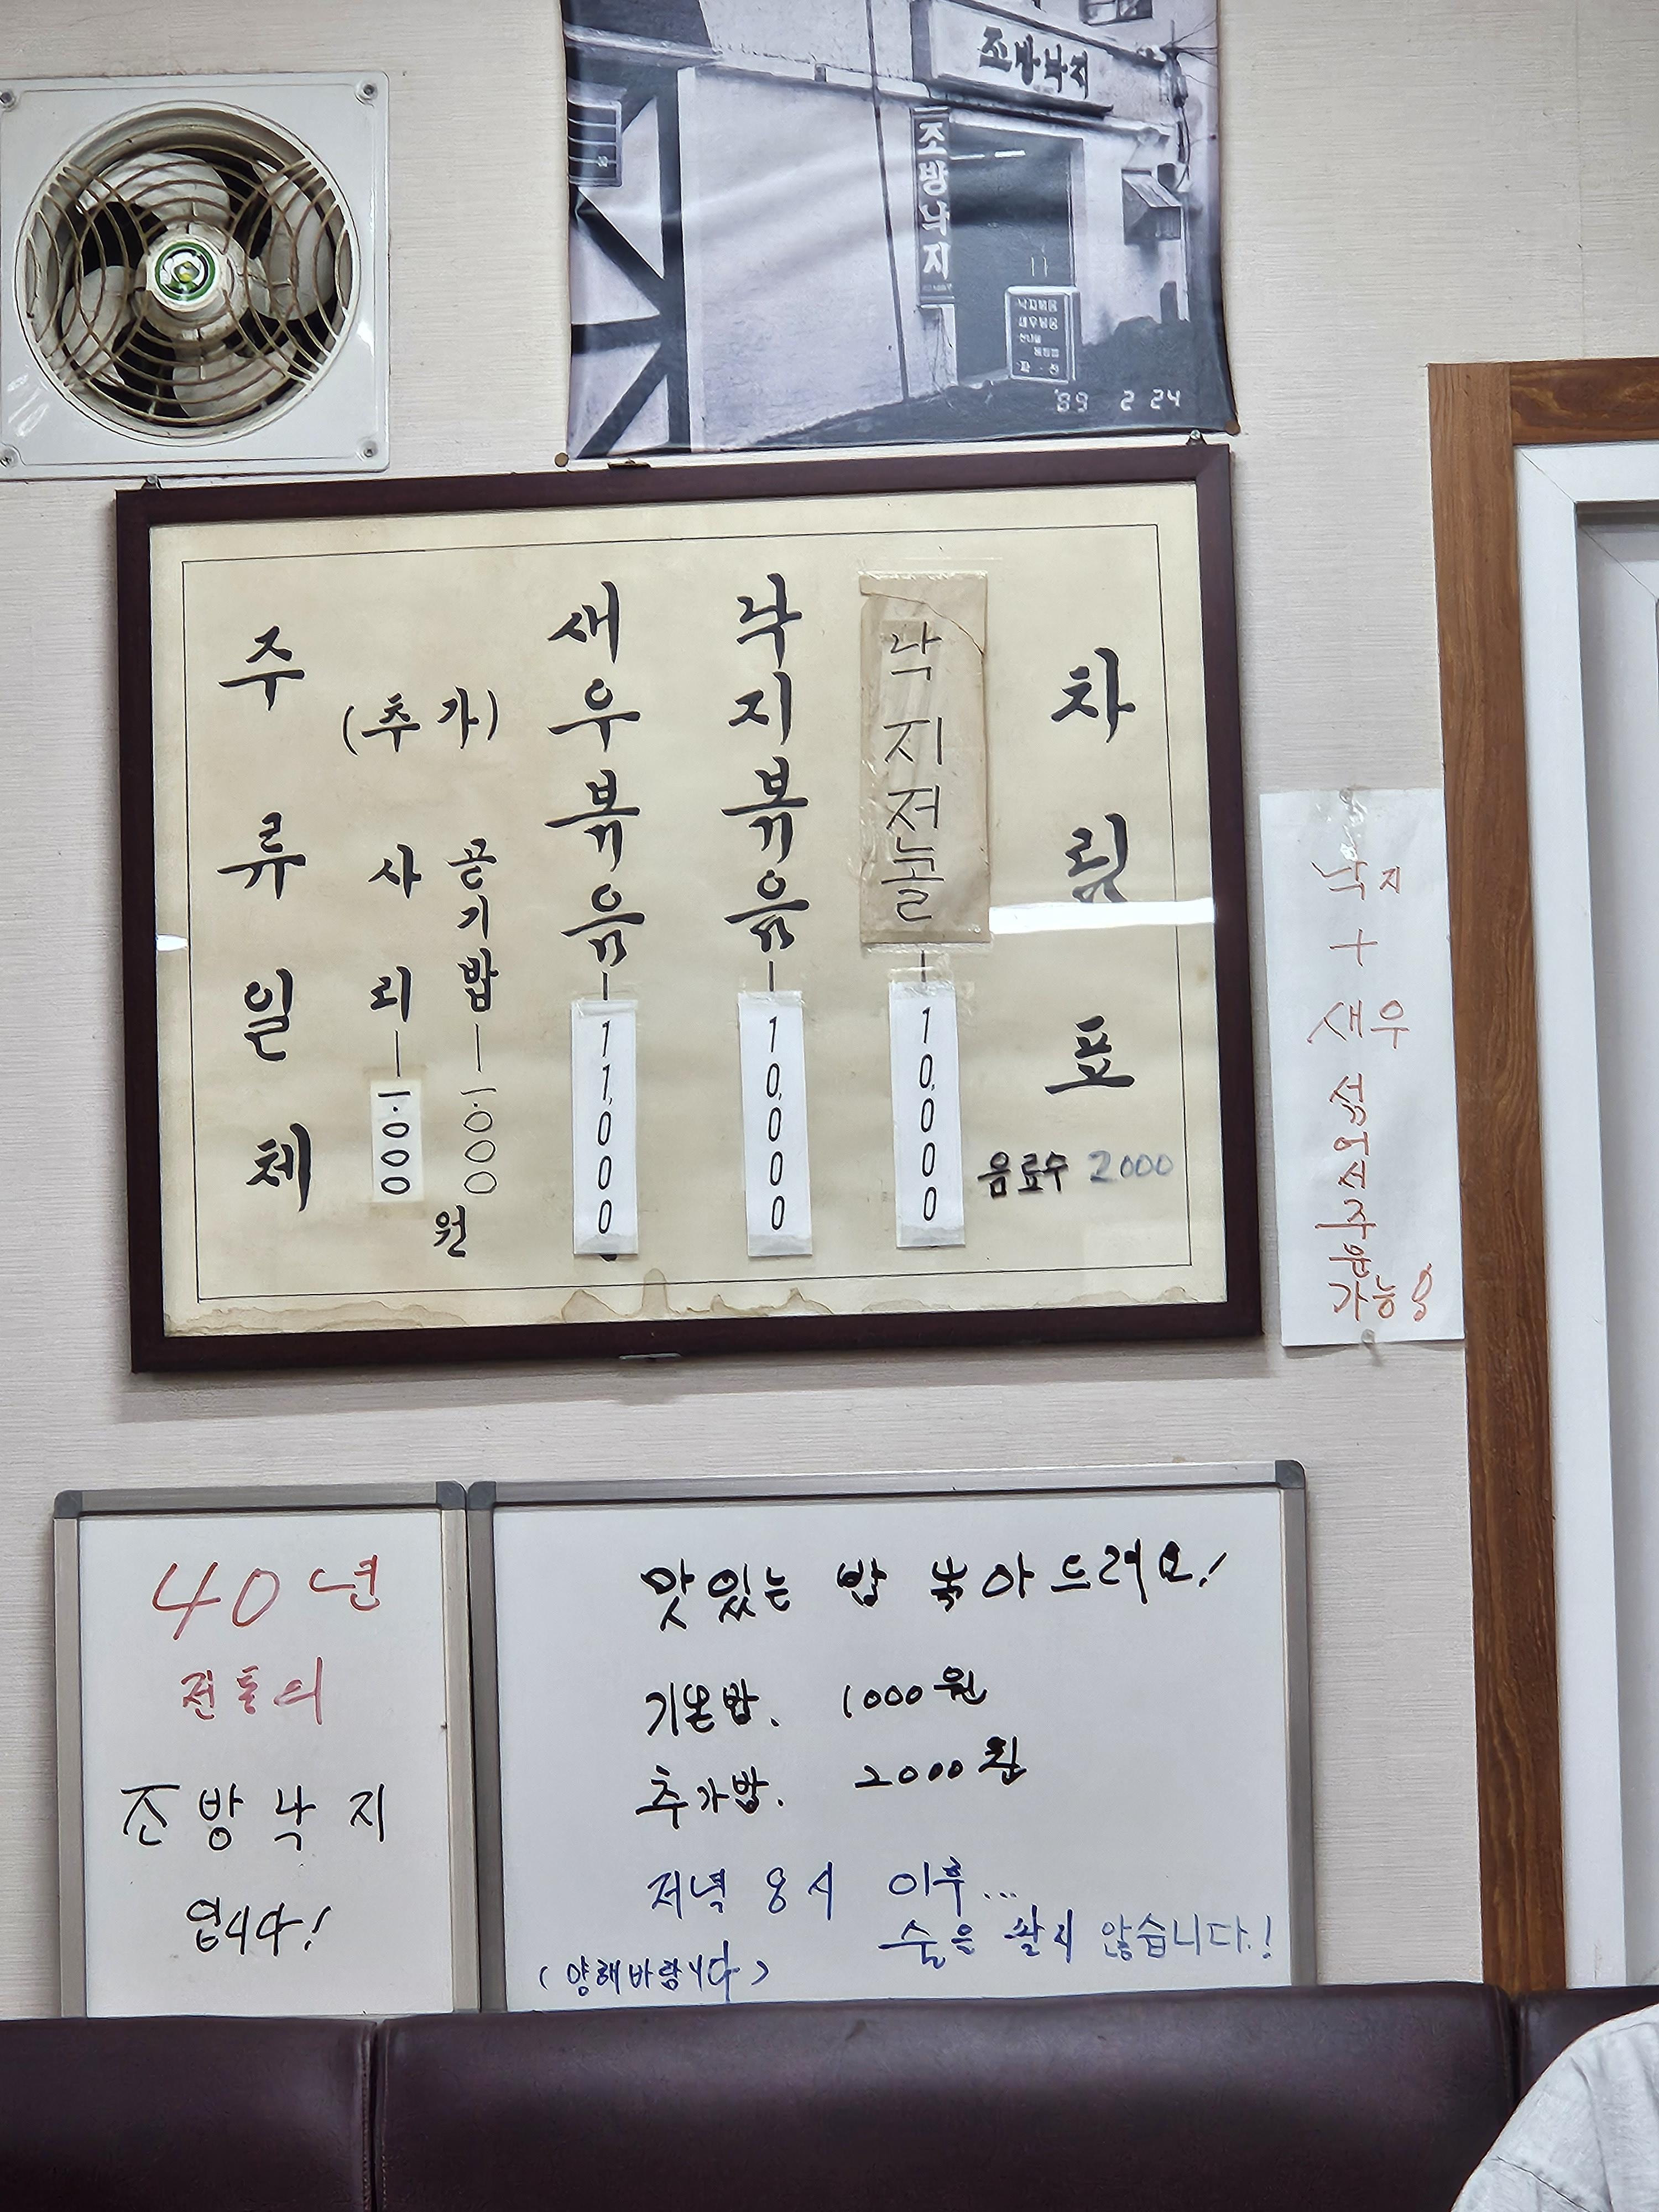 조방낙지
조방낙지
낙지볶음
새우볶음
'89 2 24
차림표
음료수 2000
낙지전골 - 10.000
낙지볶음 - 10.000
새우볶음 - 11.000
(추가)
공기밥 - 一.000
사리 - 一.000
원
주류일체
낙지
+
새우
섞어서
주문
가능용
40년
전통의
조방낙지
입니다!
맛있는 밥 볶아드려요!
기본밥. 1000원
추가밥. 2000원
저녁 8시 이후...
술은 팔지 않습니다.!
(양해바랍니다)